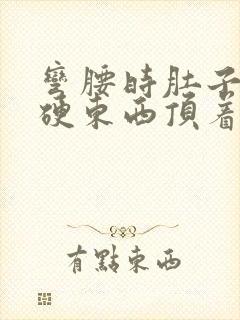 彎腰時肚子
硬東西頂着
有點東西